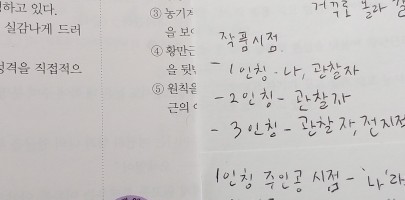 하고 있다.
실감나게 드러
성격을 직접적으
③ 농기계
을 보여
④ 황만근
을 뒷받
⑤ 원칙을
근의
거꾸로 올라
작품시점.
- 1인칭 - 나, 관찰자
- 2인칭 - 관찰자
- 3인칭 - 관찰자, 전지적
1인칭 주인공 시점 - '나'라